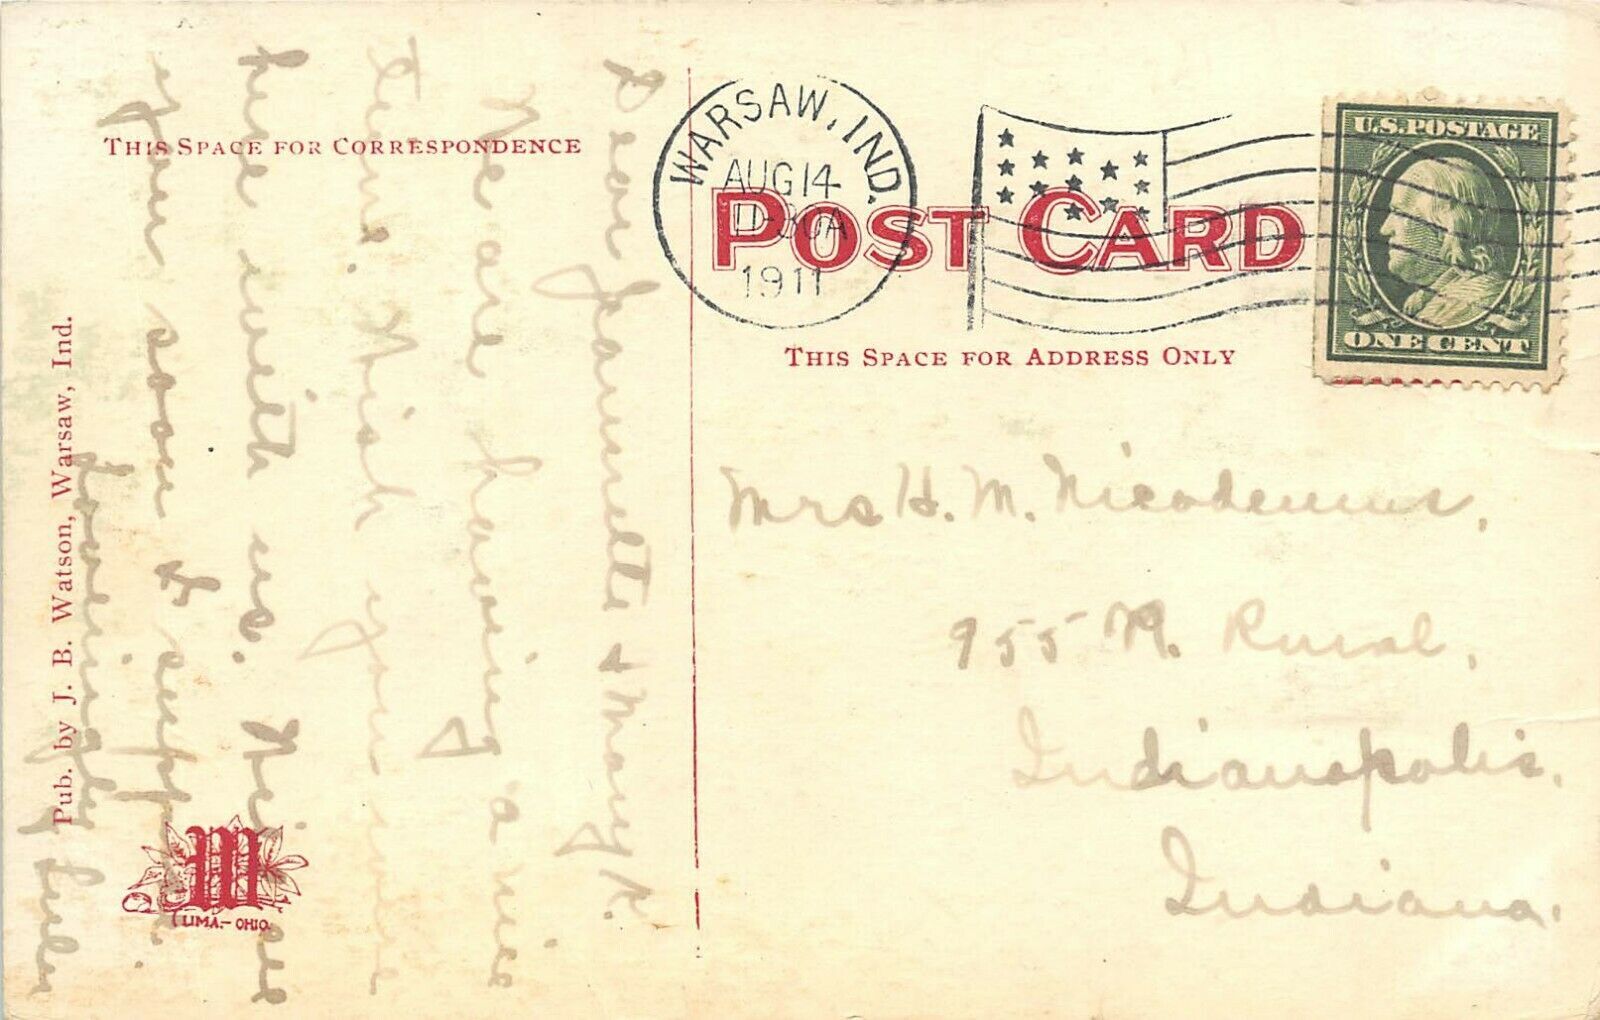 THIS SPACE FOR CORRESPONDENCE
Dear Jaunette & Mary K.
We are having a nice
time. Wish you were
here with us. Will see
you soon I suppose.
Lovingly
Pub. by J. B. Watson, Warsaw, Ind.
LIMA.- OHIO.
WARSAW, IND.
AUG 14
11-30A
1911
POST CARD
THIS SPACE FOR ADDRESS ONLY
U.S. POSTAGE
ONE CENT
Mrs H. M. Nicodemus,
955 N. Rural,
Indianapolis,
Indiana.